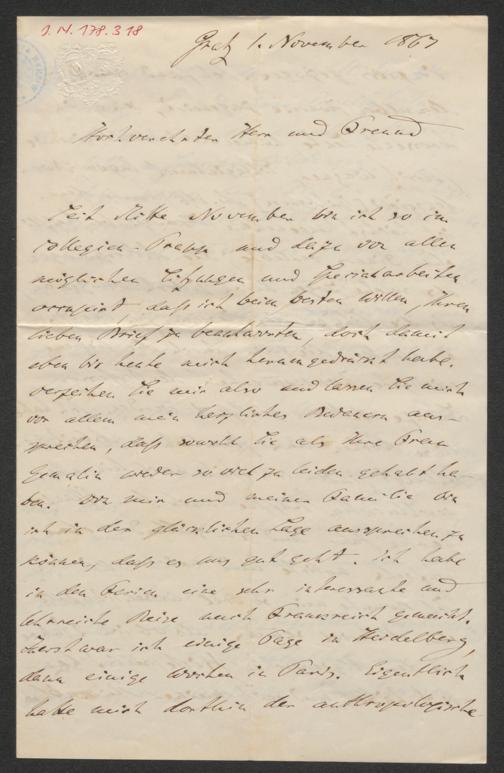 I.N. 178.318
Graz 1. November 1867
Hochverehrter Herr und Freund
Seit Mitte November bin ich so im
Collegien- und dazu von allen
möglichen Sitzungen und Specialarbeiten
occupirt daß ich beim besten Willen, Ihren
lieben Brief zu beantworten, doch damit
eben bis heute mich herumgedrückt habe.
Verzeihen Sie mir also und lassen Sie mich
vor allem mein herzliches Bedauern aus-
sprechen, daß sowohl Sie als Ihre Frau
Gemalin wieder so viel zu leiden gehabt ha-
ben. Von mir und meiner Familie bin
ich in der glücklichen Lage aussprechen zu
können, daß es uns gut geht. Ich habe
in den Ferien eine sehr interessante und
lehrreiche Reise nach Frankreich gemacht.
Zuerst war ich einige Tage in Heidelberg,
dann einige Wochen in Paris. Eigentlich
hatte mich dorthin der anthropologische